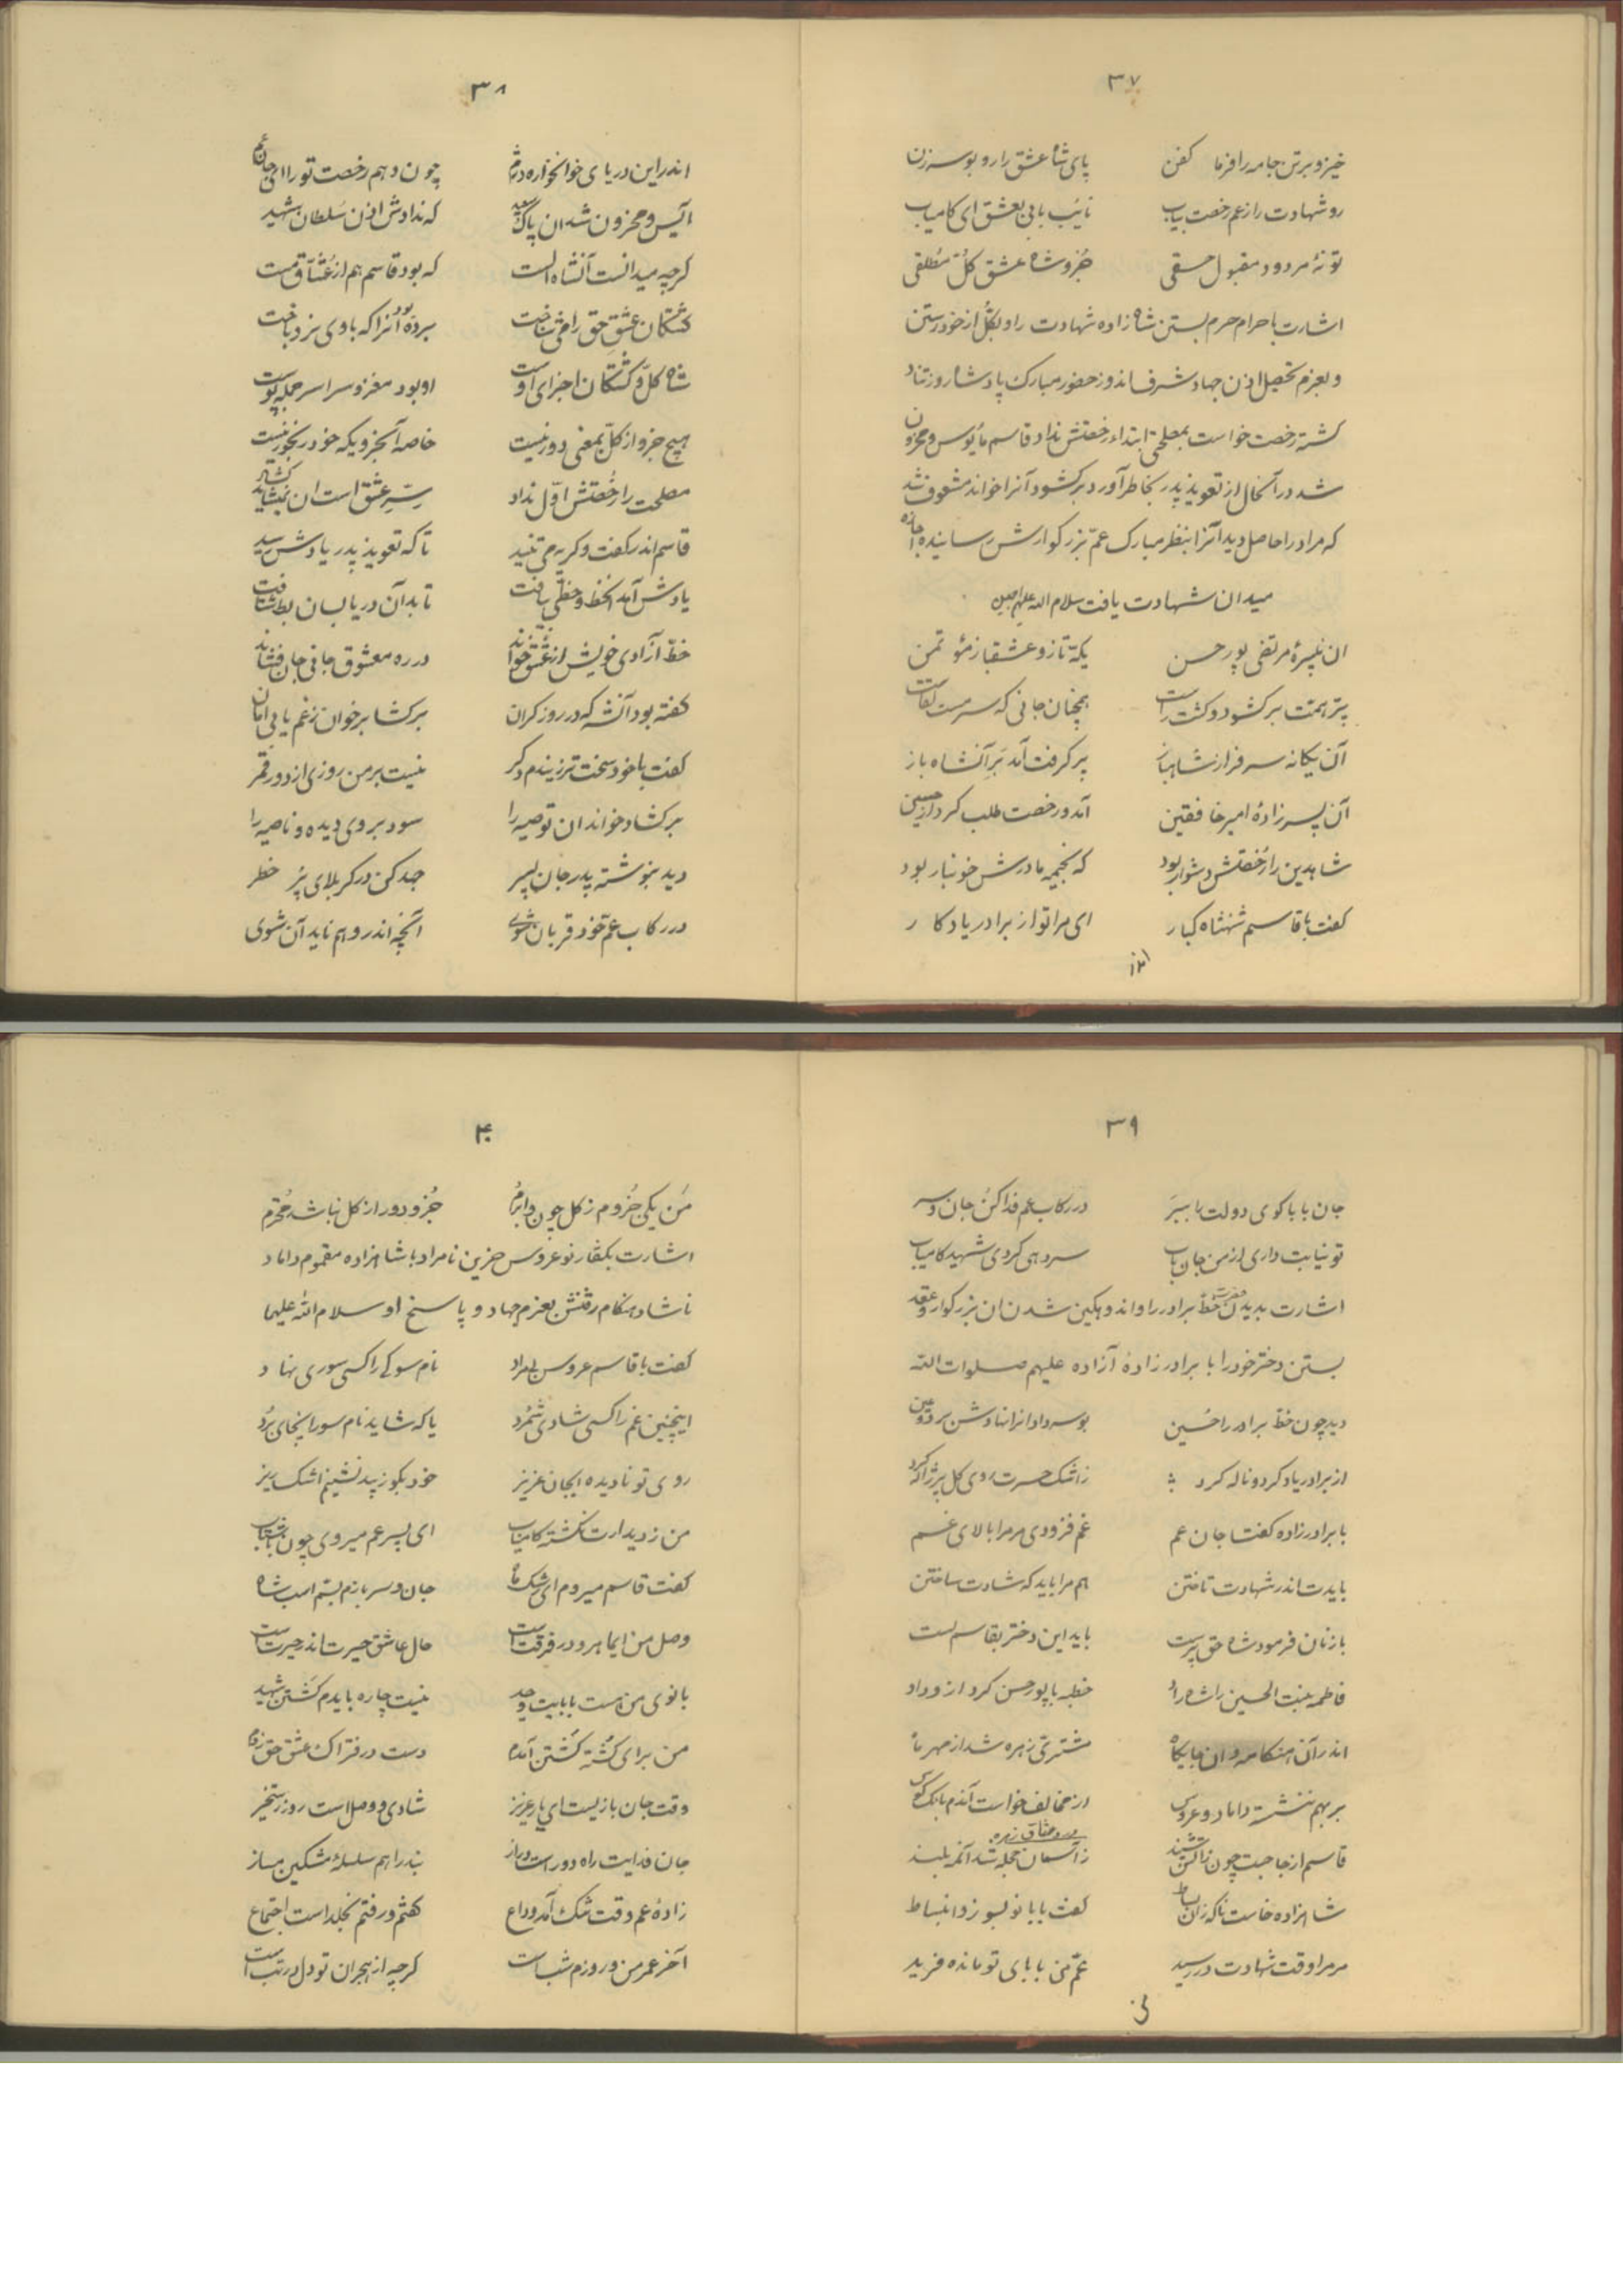 ۳۷
خیز و برتن جامه را فرما کفن پای شاه عشق را رو بوسه زن
رو شهادت را ز عم رخصت بیاب نایب بابی بعشق ای کامیاب
تو نهٔ مردود مقبول حقی جُزو شاه عشق کلّ مُطلقی
اشارت باحرام حرم بستن شاه زاده شهادت را و بکُل از خود رستن
و بعزم تحصیل اذن جهاد شرف اندوز حضور مبارک پادشاه روز تناد
کشته رخصت خواست بمصلحتی ابتداء رخصتش نداد قاسم مأیوس و محزون
شد در آنحال از تعویذ پدر بخاطر آورد برکشود آنرا خواند مشعوف شد
که مراد را حاصل دید آنرا بنظر مبارک عمّ بزرکوارش رسانیده اجازه
میدان شهادت یافت سلام الله علیهم اجمعین
ان نبیرهٔ مرتضی پور حسن یکّه تاز و عشقباز مؤتمن
پر همت برکشود و کشت راست همچنان جانی که سرمست لقاست
آن یکانه سرفراز شاهباز پر کرفت آمد بَرِ آنشاه باز
آن پسر زادهٔ امیر خافقین آمد و رخصت طلب کرد از حسین
شاهدین را رُخصتش دشوار بود که بخیمه مادرش خونبار بود
کفت با قاسم شهنشاه کبار ای مرا تو از برادر یادکار
اندر
۳۸
اندر این دریای خونخواره درم چون دهم رخصت تو را ای جان عم
آیس و محزون شد ان پاک سعید که ندادش اذن سلطان شهید
کرچه میدانست آنشاه الست که بود قاسم هم از عُشّاق مست
کشتکان عشق حق را می شناخت برده بود آنرا که با وی نرد باخت
شاه کلّ و کشتکان اجزای اوست او بود مغز و سراسر جمله پوست
هیچ جزو از کلّ بمعنی دور نیست خاصه آنجزویکه خود رنجور نیست
مصلحت را رُخصتش اوّل نداد سِرّ عشق است ان نمیشاید کشاد
قاسم اندر کفت و کریه می تنید تا که تعویذ پدر یادش رسید
یادش آمد آنخط و خطّی بیافت تا بدآن دریا بسان بط شتافت
خطّ آزادی خویش از عشق خواند در ره معشوق جانی جان فشاند
کفته بود آنشه که در روز کران برکشا برخوان ز غم یابی امان
کفت با خود سخت تر زیندم دکر نیست بر من روزی از دور قمر
برکشاد خواند ان توصیه را سود بر وی دیده و ناصیه را
دید بنوشته پدر جان پسر جد کن در کربلای پر خطر
در رکاب عمّ خود قربان شوی آنچه اندر وهم ناید آن شوی
۳۹
جان بابا کوی دولت را ببَر در رکاب عم فدا کن جان و سر
تو نیابت داری از من جان باب سر دهی کردی شهید کامیاب
اشارت بدیدن حضرت خطّ برادر را و اندوهکین شدن ان بزرکوار و عقد
بستن دختر خود را با برادر زادهٔ آزاده علیهم صلوات الله
دید چون خطّ برادر را حُسین بوسه داد انرا نهادش بر دو عین
از برادر یاد کرد و ناله کرد ز اشک حسرت روی کل پر ژاله کرد
با برادرزاده کفتا جان عم غم فزودی مر مرا بالای غم
بایدت اندر شهادت تاختن هم مرا باید که شادت ساختن
با زنان فرمود شاه حق پرست باید این دختر بقاسم بست
فاطمه بنت الحسین را شاه راد خطبه با پور حسن کرد از وداد
اندر آن هنکامه و ان جایکاه مشتری زهره شد از مهر ماه
بر بهم ننشسته داماد و عروس از مخالف خواست آندم بانک کوس
شاهزاده خاست ناکه زان بساط کفت با بانو بسوز و انبساط
مر مرا وقت شهادت در رسید عمّ من بابای تو مانده فرید
۴۰
من یکی جُزوم ز کل چون وابرم جُزو دور از کل نباشد محترم
اشارت بکفتار نو عروس حزین نامراد با شاهزاده مغموم داماد
ناشاد هنکام رفتنش بعزم جهاد و پاسخ او سلام الله علیهما
کفت با قاسم عروس بیمراد نام سوکی را کسی سوری نهاد
اینچنین غم را کسی شادی شمُرد یا که شاید نام سور اینجای بُرد
روی تو نادیده ایجان عزیز خود بکو زیبد نشینم اشک ریز
من ز دیدارت نکشته کامیاب ای پسر عم میروی چون باشتاب
کفت قاسم میروم ای رشک ماه جان و سر بازم بسمّ اسب شاه
وصل من ایماهرو در فرقت است حال عاشق حیرت اندر حیرت است
بانوی من هست بابایت وحید نیست چاره بایدم کشتن شهید
من برای کُشته کشتن آمدم دست در فتراک عشق حق زدم
وقت جان بازیست ای یار عزیز شادی و وصل است روز رستخیز
جان فدایت راه دور است و دراز بند راهم سلسلهٔ مشکین مساز
زادهٔ عم وقت تنک آمد وداع کشتم و رفتم بخلد است اجتماع
آخر عمر من و روزم شب است کرچه از هجران تو دل در تب است